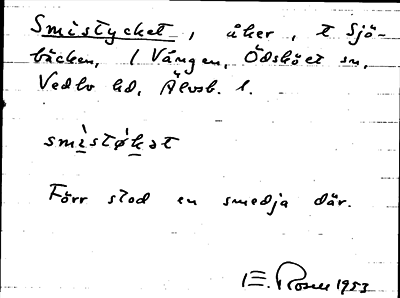 Smistycket, åker, t Sjö-
bäcken, 1 Vången, Ödsköet sn,
Vedbo hd, Älvsb. l.
smìstø̀kət
Förr stod en smedja där.
E. Rosell 1953